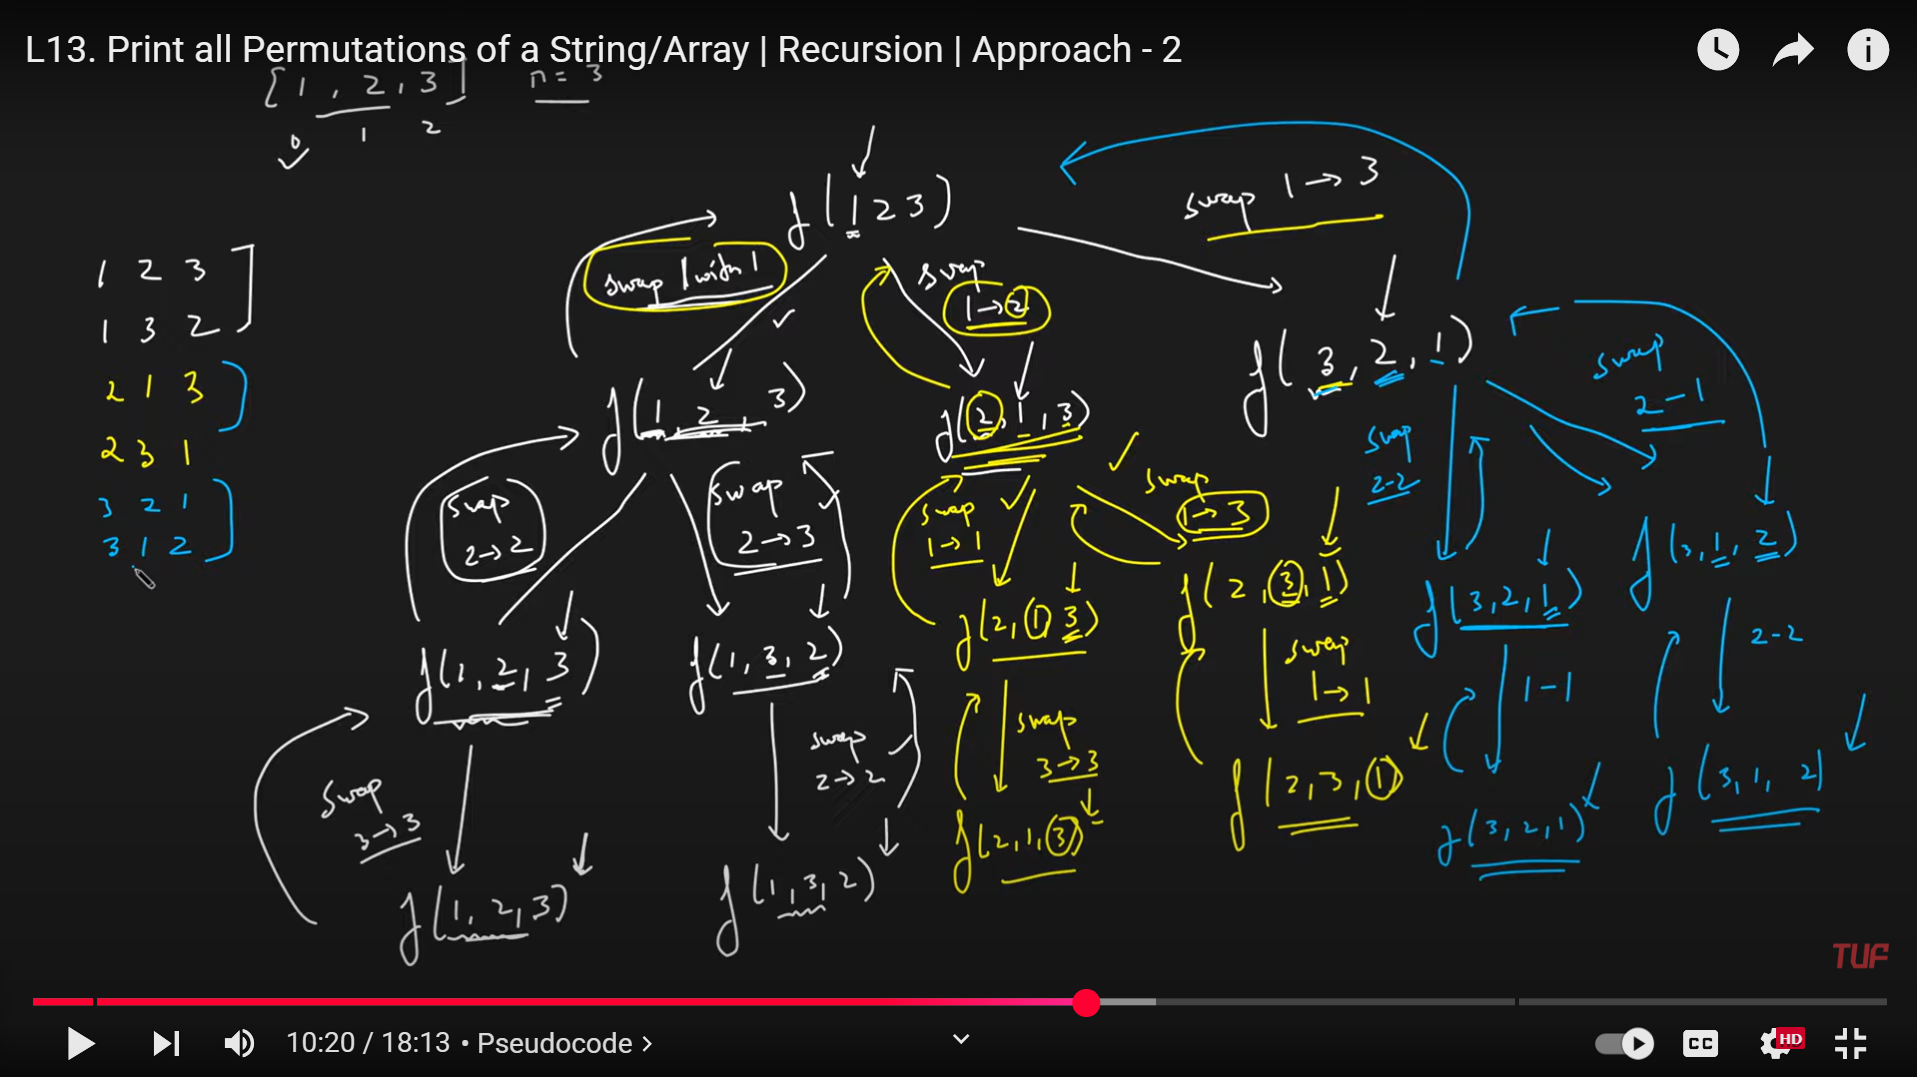 L13. Print all Permutations of a String/Array | Recursion | Approach - 2
[1, 2, 3] n = 3
0 1 2
f(1 2 3)
swap 1 → 3
swap 1 with 1
swap
1 → 2
1 2 3
1 3 2
2 1 3
2 3 1
3 2 1
3 1 2
f(1, 2, 3)
f(2, 1, 3)
f(3, 2, 1)
swap
2 - 1
swap
2 → 2
swap
2 → 3
swap
1 → 1
swap
1 → 3
swap
2-2
f(1, 2, 3)
f(1, 3, 2)
f(2, 1 3)
f(2, 3, 1)
f(3, 2, 1)
f(3, 1, 2)
swap
3 → 3
swap
2 → 2
swap
3 → 3
swap
1 → 1
1 - 1
2-2
f(1, 2, 3)
f(1, 3, 2)
f(2, 1, 3)
f(2, 3, 1)
f(3, 2, 1)
f(3, 1, 2)
TUF
10:20 / 18:13 • Pseudocode >
CC
HD